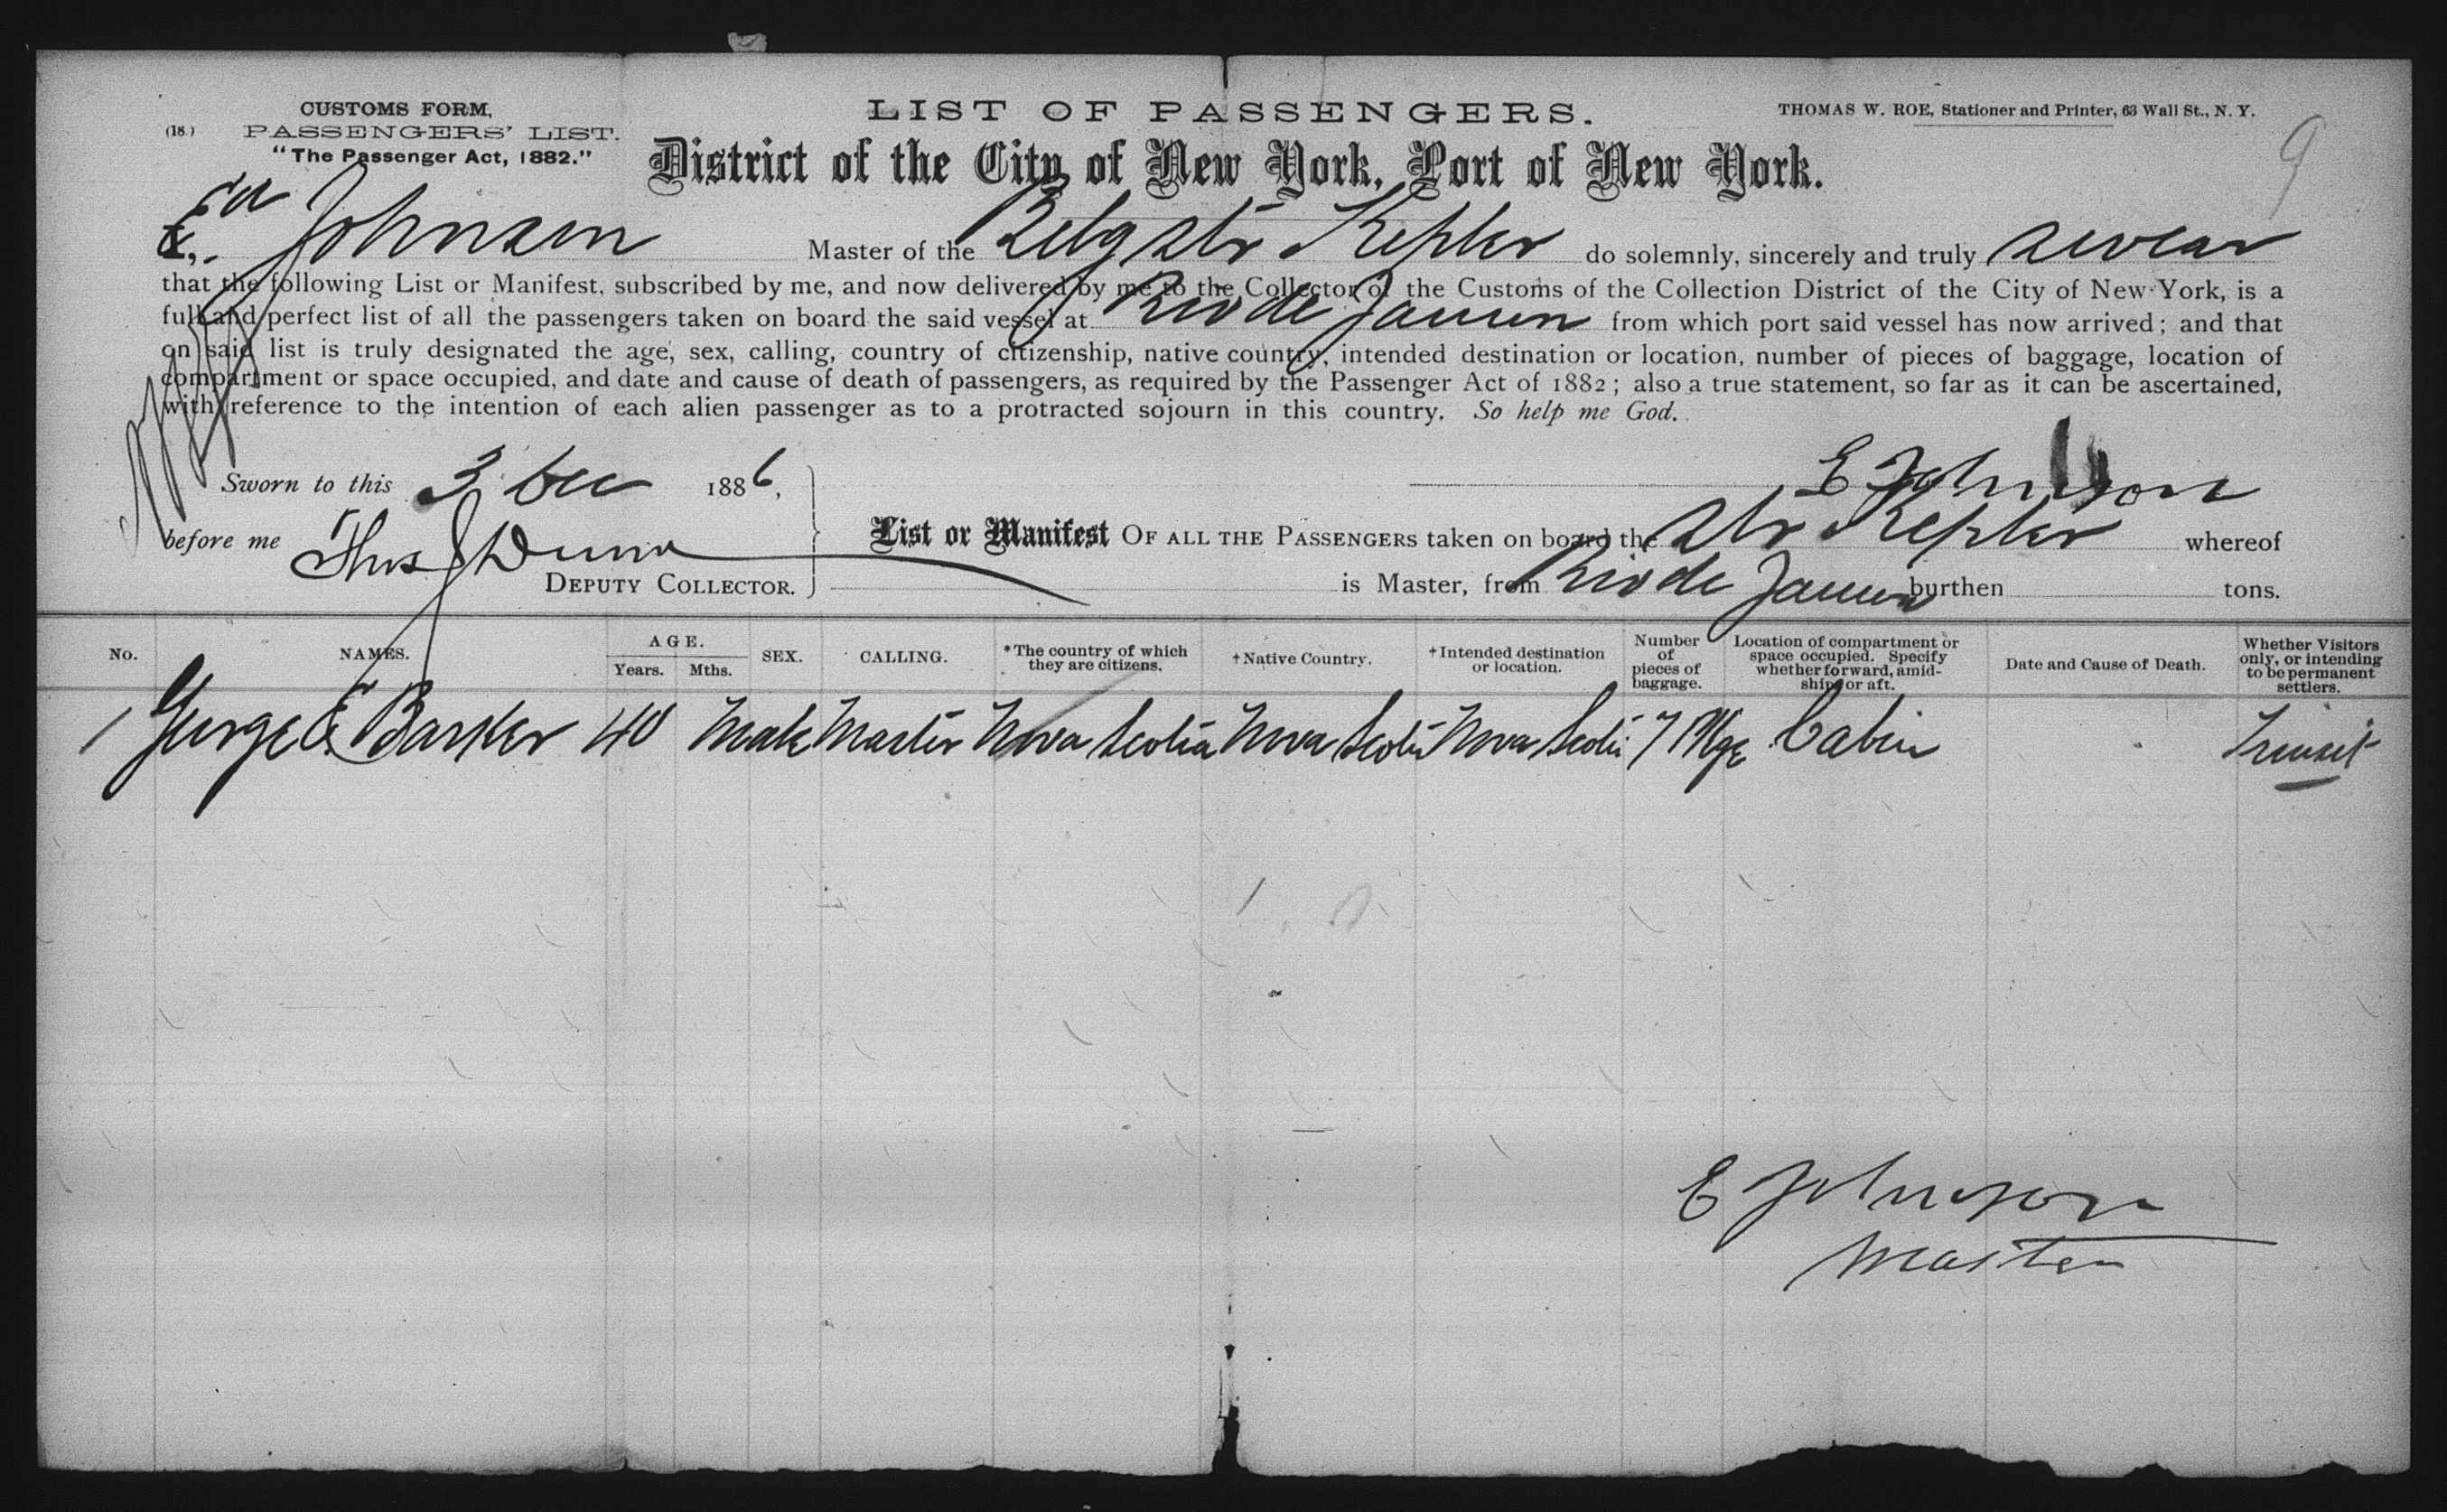 CUSTOMS FORM,
(18.) PASSENGERS' LIST.
"The Passenger Act, 1882."
LIST OF PASSENGERS.
THOMAS W. ROE, Stationer and Printer, 63 Wall St., N. Y.
District of the City of New York, Port of New York.
9
I, Ed Johnson Master of the Belg Str Kepler do solemnly, sincerely and truly swear
that the following List or Manifest, subscribed by me, and now delivered by me to the Collector of the Customs of the Collection District of the City of New York, is a
full and perfect list of all the passengers taken on board the said vessel at Rio de Janeiro from which port said vessel has now arrived; and that
on said list is truly designated the age, sex, calling, country of citizenship, native country, intended destination or location, number of pieces of baggage, location of
compartment or space occupied, and date and cause of death of passengers, as required by the Passenger Act of 1882; also a true statement, so far as it can be ascertained,
with reference to the intention of each alien passenger as to a protracted sojourn in this country. So help me God.
Sworn to this 3 Dec 1886,
E Johnson
before me Thos J Dunn
DEPUTY COLLECTOR.
List or Manifest OF ALL THE PASSENGERS taken on board the Str Kepler whereof
is Master, from Rio de Janeiro burthen tons.
No. NAMES. AGE. Years. Mths. SEX. CALLING. *The country of which they are citizens. †Native Country. †Intended destination or location. Number of pieces of baggage. Location of compartment or space occupied. Specify whether forward, amidships or aft. Date and Cause of Death. Whether Visitors only, or intending to be permanent settlers.
1 George E Barker 40 Male Master Nova Scotia Nova Scotia Nova Scotia 7 Cabin Transit
E Johnson
Master